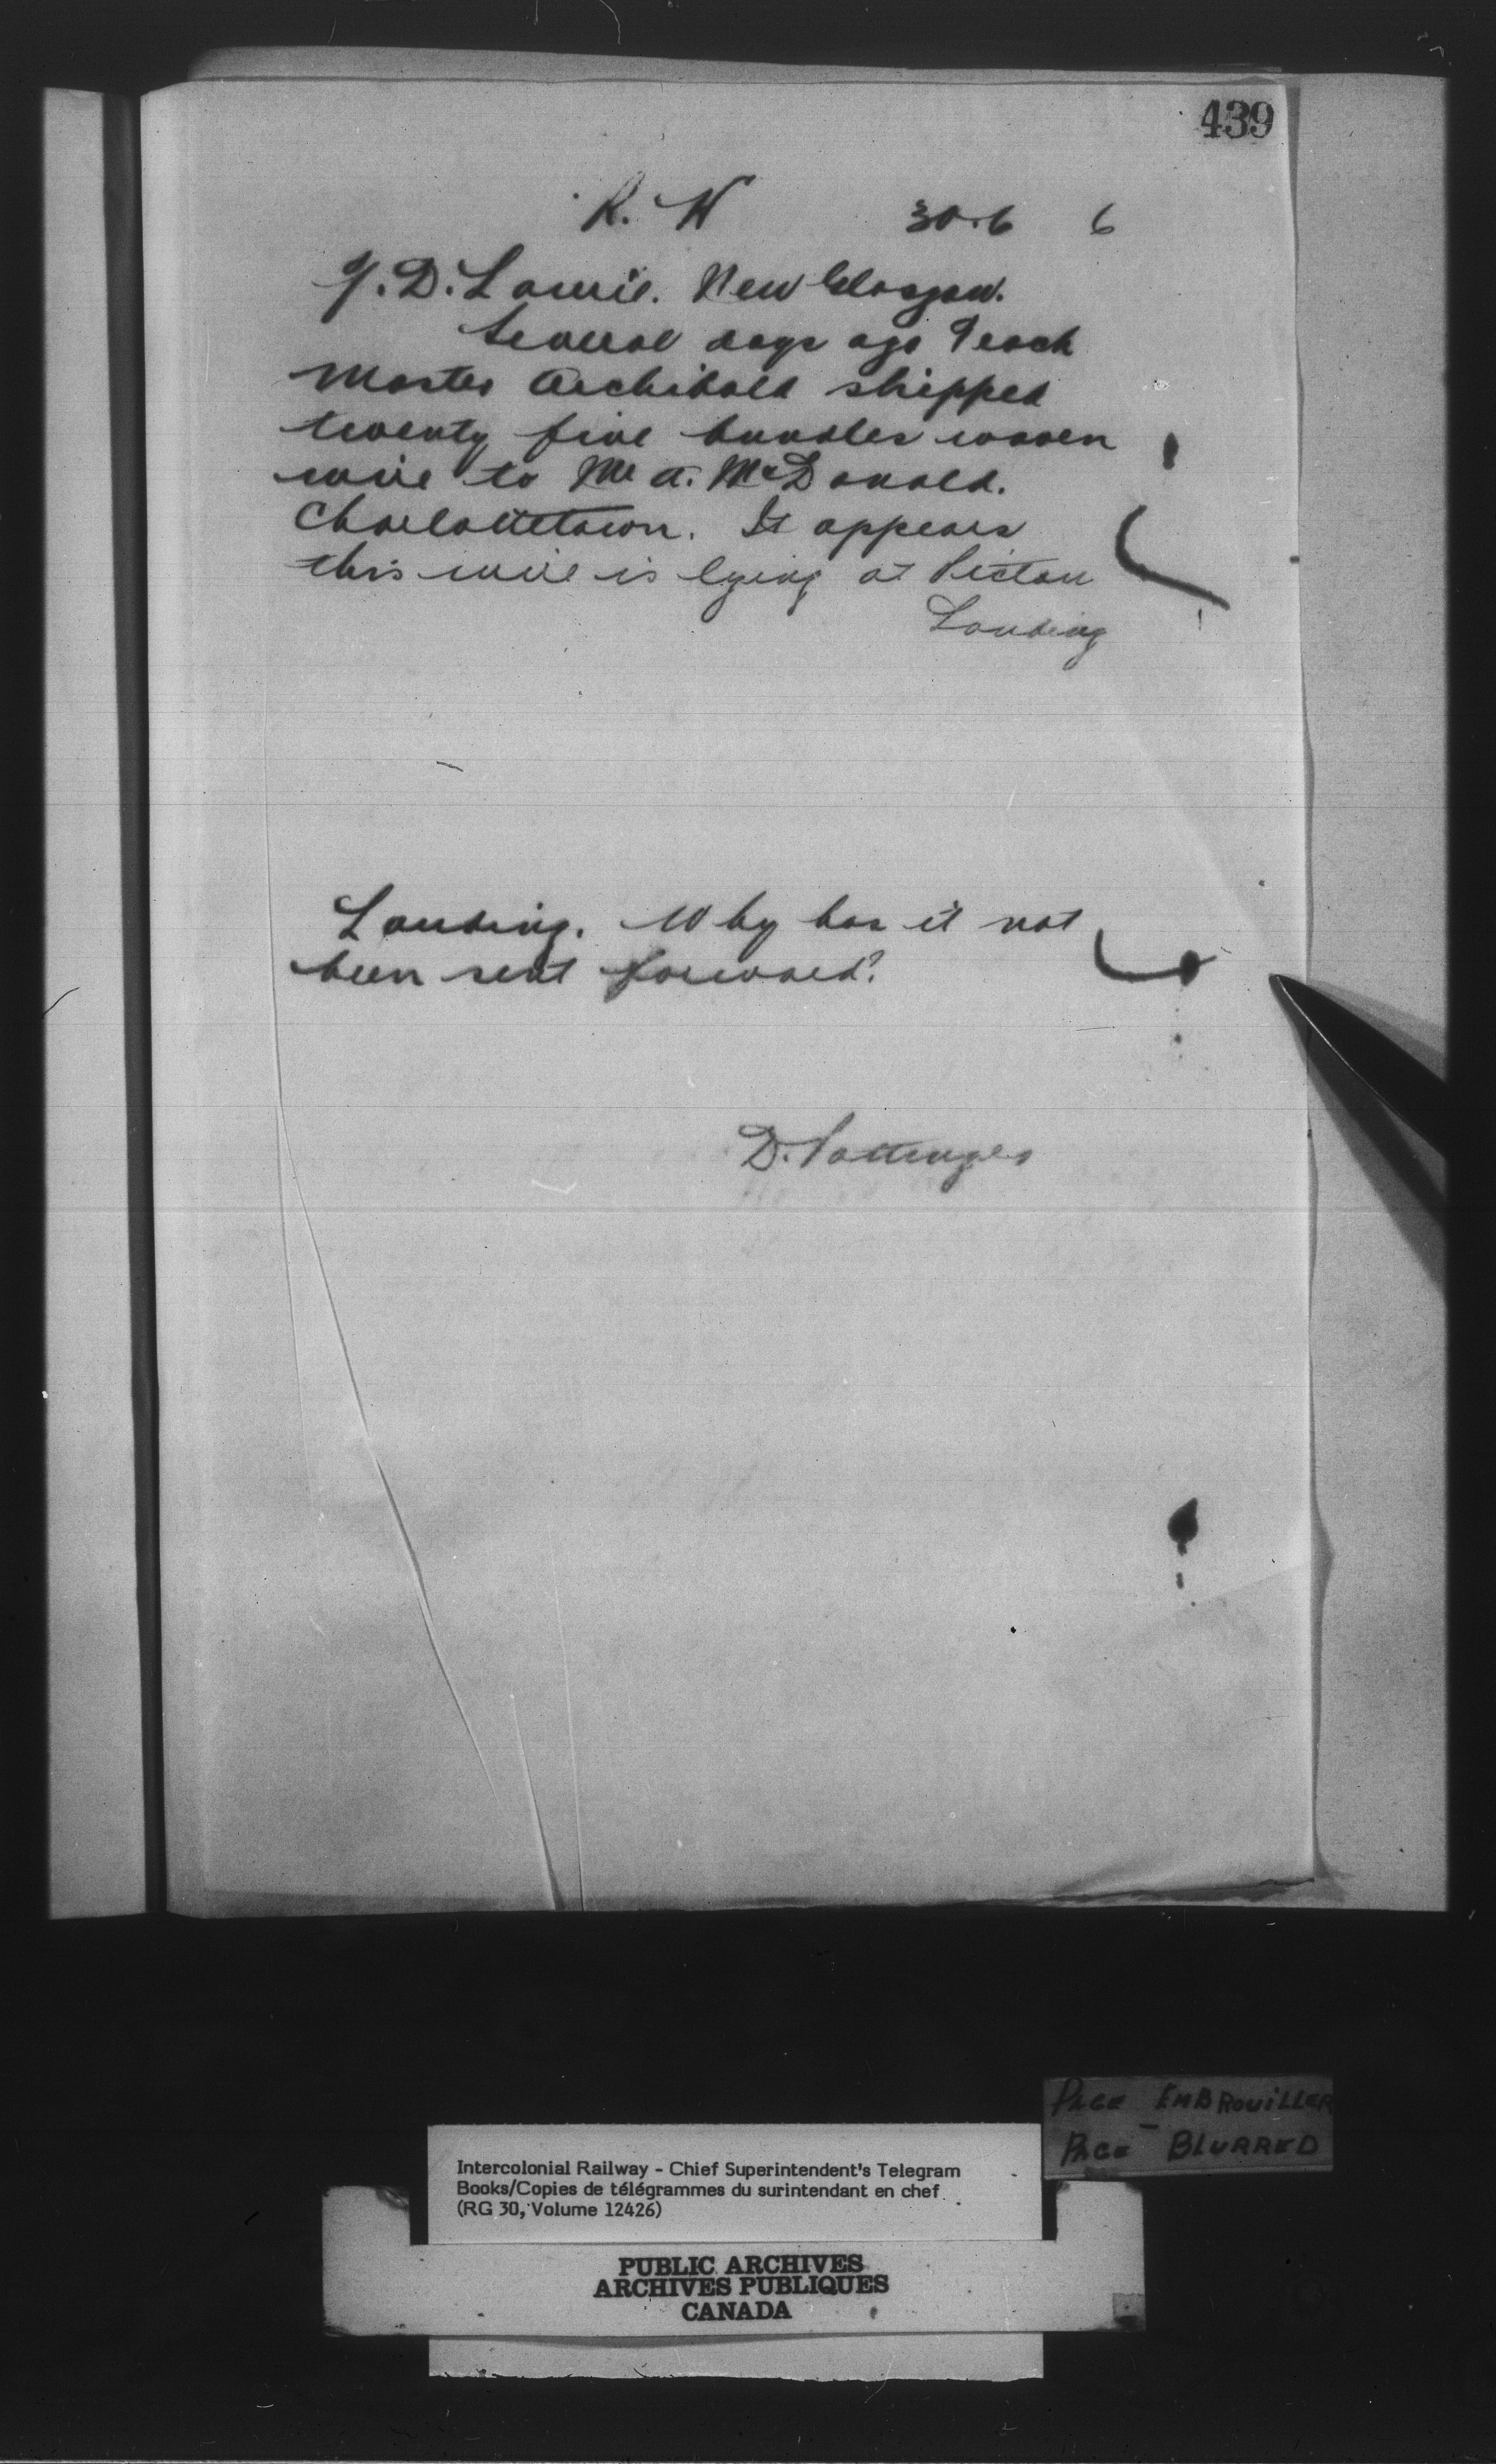 439
R. W 30.6 6
Y. D. Lawrie. New Glasgow.
Several days ago Track
Master Archibald shipped
twenty five bundles woven
wire to Mr A. McDonald.
Charlottetown. It appears
this wire is lying at Pictou
Landing
Landing. Why has it not
been sent forward?
D. Pottinger
PAGE EMBROUILLER
PAGE BLURRED
Intercolonial Railway - Chief Superintendent's Telegram
Books/Copies de télégrammes du surintendant en chef
(RG 30, Volume 12426)
PUBLIC ARCHIVES
ARCHIVES PUBLIQUES
CANADA